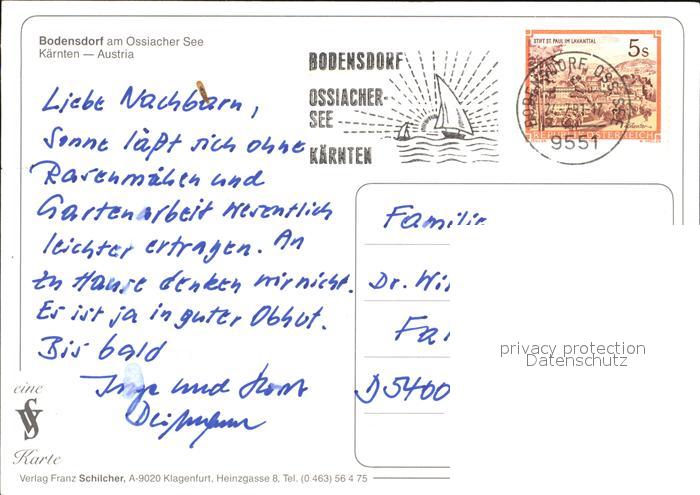 Bodensdorf am Ossiacher See
Kärnten — Austria
BODENSDORF
OSSIACHER-
SEE
KÄRNTEN
STIFT ST. PAUL IM LAVANTTAL
5s
REPUBLIK ÖSTERREICH
9551
Liebe Nachbarn,
Sonne läßt sich ohne
Rasenmähen und
Gartenarbeit wesentlich
leichter ertragen. An
zu Hause denken wir nicht.
Es ist ja in guter Obhut.
Bis bald
Inge und Horst
Familie
Dr. Wi
Fa
D 5400
privacy protection
Datenschutz
eine
Karte
Verlag Franz Schilcher, A-9020 Klagenfurt, Heinzgasse 8, Tel. (0 463) 56 4 75